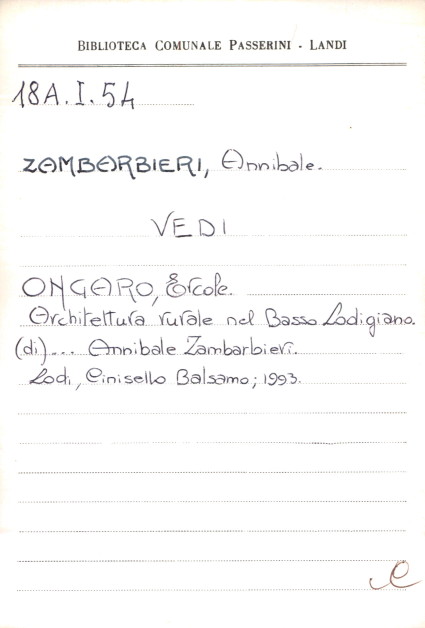 BIBLIOTECA COMUNALE PASSERINI - LANDI
18A.I.54
ZAMBARBIERI, Annibale.
VEDI
ONGARO, Ercole.
Architettura rurale nel Basso Lodigiano.
(di)... Annibale Zambarbieri.
Lodi, Cinisello Balsamo; 1993.
e